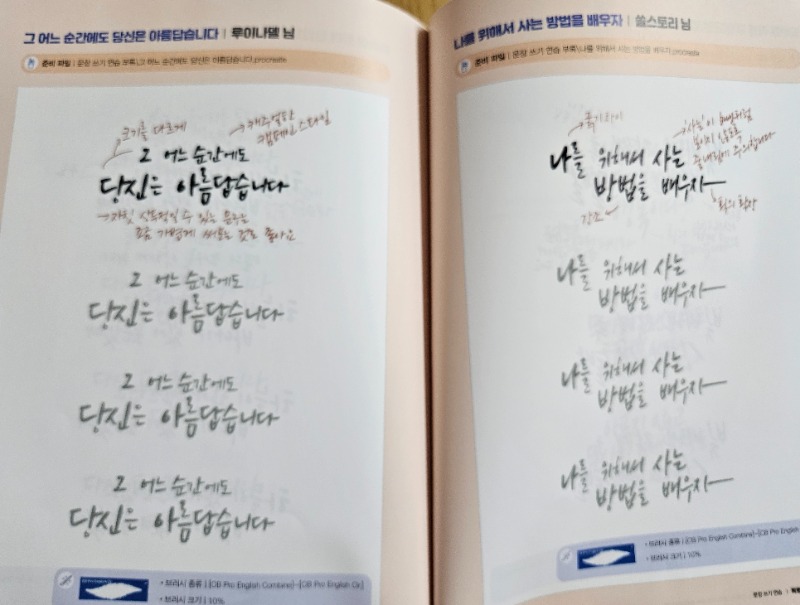 그 어느 순간에도 당신은 아름답습니다 | 루이나델 님
준비 파일 | 문장 쓰기 연습 부록\그 어느 순간에도 당신은 아름답습니다.procreate
크기를 다르게
캐주얼한
캠페인 스타일
그 어느 순간에도
당신은 아름답습니다
자칫 심플할 수 있는 문구는
조금 가볍게 써보는 것도 좋아요
그 어느 순간에도
당신은 아름답습니다
그 어느 순간에도
당신은 아름답습니다
그 어느 순간에도
당신은 아름답습니다
• 브러시 종류 | [OB Pro English Combine]-[OB Pro English Clr]
• 브러시 크기 | 10%
나를 위해서 사는 방법을 배우자 | 쏠스토리 님
준비 파일 | 문장 쓰기 연습 부록\나를 위해서 사는 방법을 배우자.procreate
굵기 차이
보이지 않도록
주의합니다
나를 위해서 사는
방법을 배우자
강조
획의 확장
나를 위해서 사는
방법을 배우자
나를 위해서 사는
방법을 배우자
나를 위해서 사는
방법을 배우자
• 브러시 종류 | [OB Pro English Combine]-[OB Pro English
• 브러시 크기 | 10%
문장 쓰기 연습